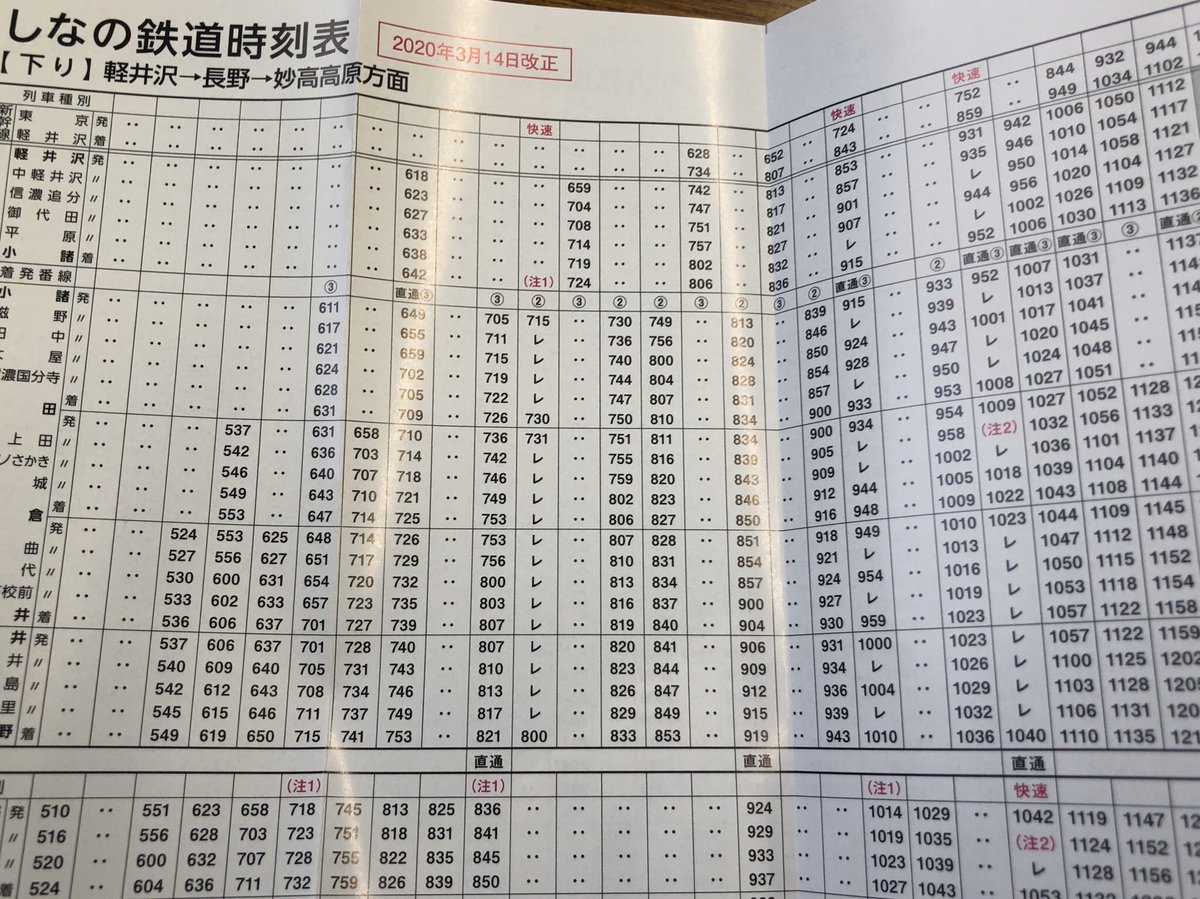 しなの鉄道時刻表
2020年3月14日改正
【下り】軽井沢→長野→妙高高原方面
列車種別 快速 快速 快速
新幹線 東京 発 ‥ ‥ ‥ ‥ ‥ ‥ ‥ ‥ ‥ ‥ ‥ ‥ 628 ‥ 652 ‥ 724 ‥ ‥ 752 ‥ 844 932 944
軽井沢 着 ‥ ‥ ‥ ‥ ‥ ‥ ‥ ‥ ‥ ‥ ‥ ‥ 734 ‥ 807 ‥ 843 ‥ ‥ 859 ‥ 949 1034 1102
軽井沢 発 ‥ ‥ ‥ ‥ ‥ ‥ 618 ‥ ‥ 659 ‥ ‥ 742 ‥ 813 ‥ 853 ‥ ‥ 931 942 1006 1050 1112
中軽井沢 〃 ‥ ‥ ‥ ‥ ‥ ‥ 623 ‥ ‥ 704 ‥ ‥ 747 ‥ 817 ‥ 857 ‥ ‥ 935 946 1010 1054 1117
信濃追分 〃 ‥ ‥ ‥ ‥ ‥ ‥ 627 ‥ ‥ 708 ‥ ‥ 751 ‥ 821 ‥ 901 ‥ ‥ レ 950 1014 1058 1121
御代田 〃 ‥ ‥ ‥ ‥ ‥ ‥ 633 ‥ ‥ 714 ‥ ‥ 757 ‥ 827 ‥ 907 ‥ ‥ 944 956 1020 1104 1127
平原 〃 ‥ ‥ ‥ ‥ ‥ ‥ 638 ‥ ‥ 719 ‥ ‥ 802 ‥ 832 ‥ レ ‥ ‥ レ 1002 1026 1109 1132
小諸 着 ‥ ‥ ‥ ‥ ‥ ‥ 642 ‥ (注1) 724 ‥ ‥ 806 ‥ 836 ‥ 915 ‥ ‥ 952 1006 1030 1113 1136
着発番線 ③ 直通③ ③ ② ③ ② ② ③ ② ③ ② 直通③ ② 直通③ 直通③ 直通③ ③ 直通③
小諸 発 ‥ ‥ ‥ ‥ 611 ‥ 649 705 715 ‥ 730 749 ‥ 813 ‥ 839 915 ‥ 933 952 1007 1031 ‥ 1137
野 〃 ‥ ‥ ‥ ‥ 617 ‥ 655 711 レ ‥ 736 756 ‥ 820 ‥ 846 レ ‥ 939 レ 1013 1037 ‥
中 〃 ‥ ‥ ‥ ‥ 621 ‥ 659 715 レ ‥ 740 800 ‥ 824 ‥ 850 924 ‥ 943 1001 1017 1041 ‥
屋 〃 ‥ ‥ ‥ ‥ 624 ‥ 702 719 レ ‥ 744 804 ‥ 828 ‥ 854 928 ‥ 947 レ 1020 1045 ‥
濃国分寺 〃 ‥ ‥ ‥ ‥ 628 ‥ 705 722 レ ‥ 747 807 ‥ 831 ‥ 857 レ ‥ 950 レ 1024 1048 ‥
田 着 ‥ ‥ ‥ ‥ 631 ‥ 709 726 730 ‥ 750 810 ‥ 834 ‥ 900 933 ‥ 953 1008 1027 1051 ‥
発 ‥ ‥ 537 ‥ 631 658 710 ‥ 736 731 ‥ 751 811 ‥ 834 ‥ 900 934 ‥ 954 1009 1027 1052 1128
上田 〃 ‥ ‥ 542 ‥ 636 703 714 ‥ 742 レ ‥ 755 816 ‥ 839 ‥ 905 レ ‥ 958 (注2) 1032 1056 1133
ノさかき 〃 ‥ ‥ 546 ‥ 640 707 718 ‥ 746 レ ‥ 759 820 ‥ 843 ‥ 909 レ ‥ 1002 レ 1036 1101 1137
城 〃 ‥ ‥ 549 ‥ 643 710 721 ‥ 749 レ ‥ 802 823 ‥ 846 ‥ 912 944 ‥ 1005 1018 1039 1104 1140
倉 着 ‥ ‥ 553 ‥ 647 714 725 ‥ 753 レ ‥ 806 827 ‥ 850 ‥ 916 948 ‥ 1009 1022 1043 1108 1144
発 ‥ ‥ 524 553 625 648 714 726 ‥ 753 レ ‥ 807 828 ‥ 851 ‥ 918 949 ‥ 1010 1023 1044 1109 1145
曲 〃 ‥ ‥ 527 556 627 651 717 729 ‥ 756 レ ‥ 810 831 ‥ 854 ‥ 921 レ ‥ 1013 レ 1047 1112 1148
代 〃 ‥ ‥ 530 600 631 654 720 732 ‥ 800 レ ‥ 813 834 ‥ 857 ‥ 924 954 ‥ 1016 レ 1050 1115 1152
校前 〃 ‥ ‥ 533 602 633 657 723 735 ‥ 803 レ ‥ 816 837 ‥ 900 ‥ 927 レ ‥ 1019 レ 1053 1118 1154
井 着 ‥ ‥ 536 606 637 701 727 739 ‥ 807 レ ‥ 819 840 ‥ 904 ‥ 930 959 ‥ 1023 レ 1057 1122 1158
井 発 ‥ ‥ 537 606 637 701 728 740 ‥ 807 レ ‥ 820 841 ‥ 906 ‥ 931 1000 ‥ 1023 レ 1057 1122 1159
井 〃 ‥ ‥ 540 609 640 705 731 743 ‥ 810 レ ‥ 823 844 ‥ 909 ‥ 934 レ ‥ 1026 レ 1100 1125 1202
島 〃 ‥ ‥ 542 612 643 708 734 746 ‥ 813 レ ‥ 826 847 ‥ 912 ‥ 936 1004 ‥ 1029 レ 1103 1128 1205
里 〃 ‥ ‥ 545 615 646 711 737 749 ‥ 817 レ ‥ 829 849 ‥ 915 ‥ 939 レ ‥ 1032 レ 1106 1131
野 着 ‥ ‥ 549 619 650 715 741 753 ‥ 821 800 ‥ 833 853 ‥ 919 ‥ 943 1010 ‥ 1036 1040 1110 1135
直通 直通 直通
別 (注1) (注1) (注1) 快速
発 510 ‥ 551 623 658 718 745 813 825 836 ‥ ‥ ‥ ‥ ‥ 924 ‥ ‥ 1014 1029 ‥ 1042 1119 1147
〃 516 ‥ 556 628 703 723 751 818 831 841 ‥ ‥ ‥ ‥ ‥ 929 ‥ ‥ 1019 1035 ‥ (注2) 1124 1152
〃 520 ‥ 600 632 707 728 755 822 835 845 ‥ ‥ ‥ ‥ ‥ 933 ‥ ‥ 1023 1039 ‥ レ 1128 1156
着 524 ‥ 604 636 711 732 759 826 839 850 ‥ ‥ ‥ ‥ ‥ 937 ‥ ‥ 1027 1043 ‥ 1053